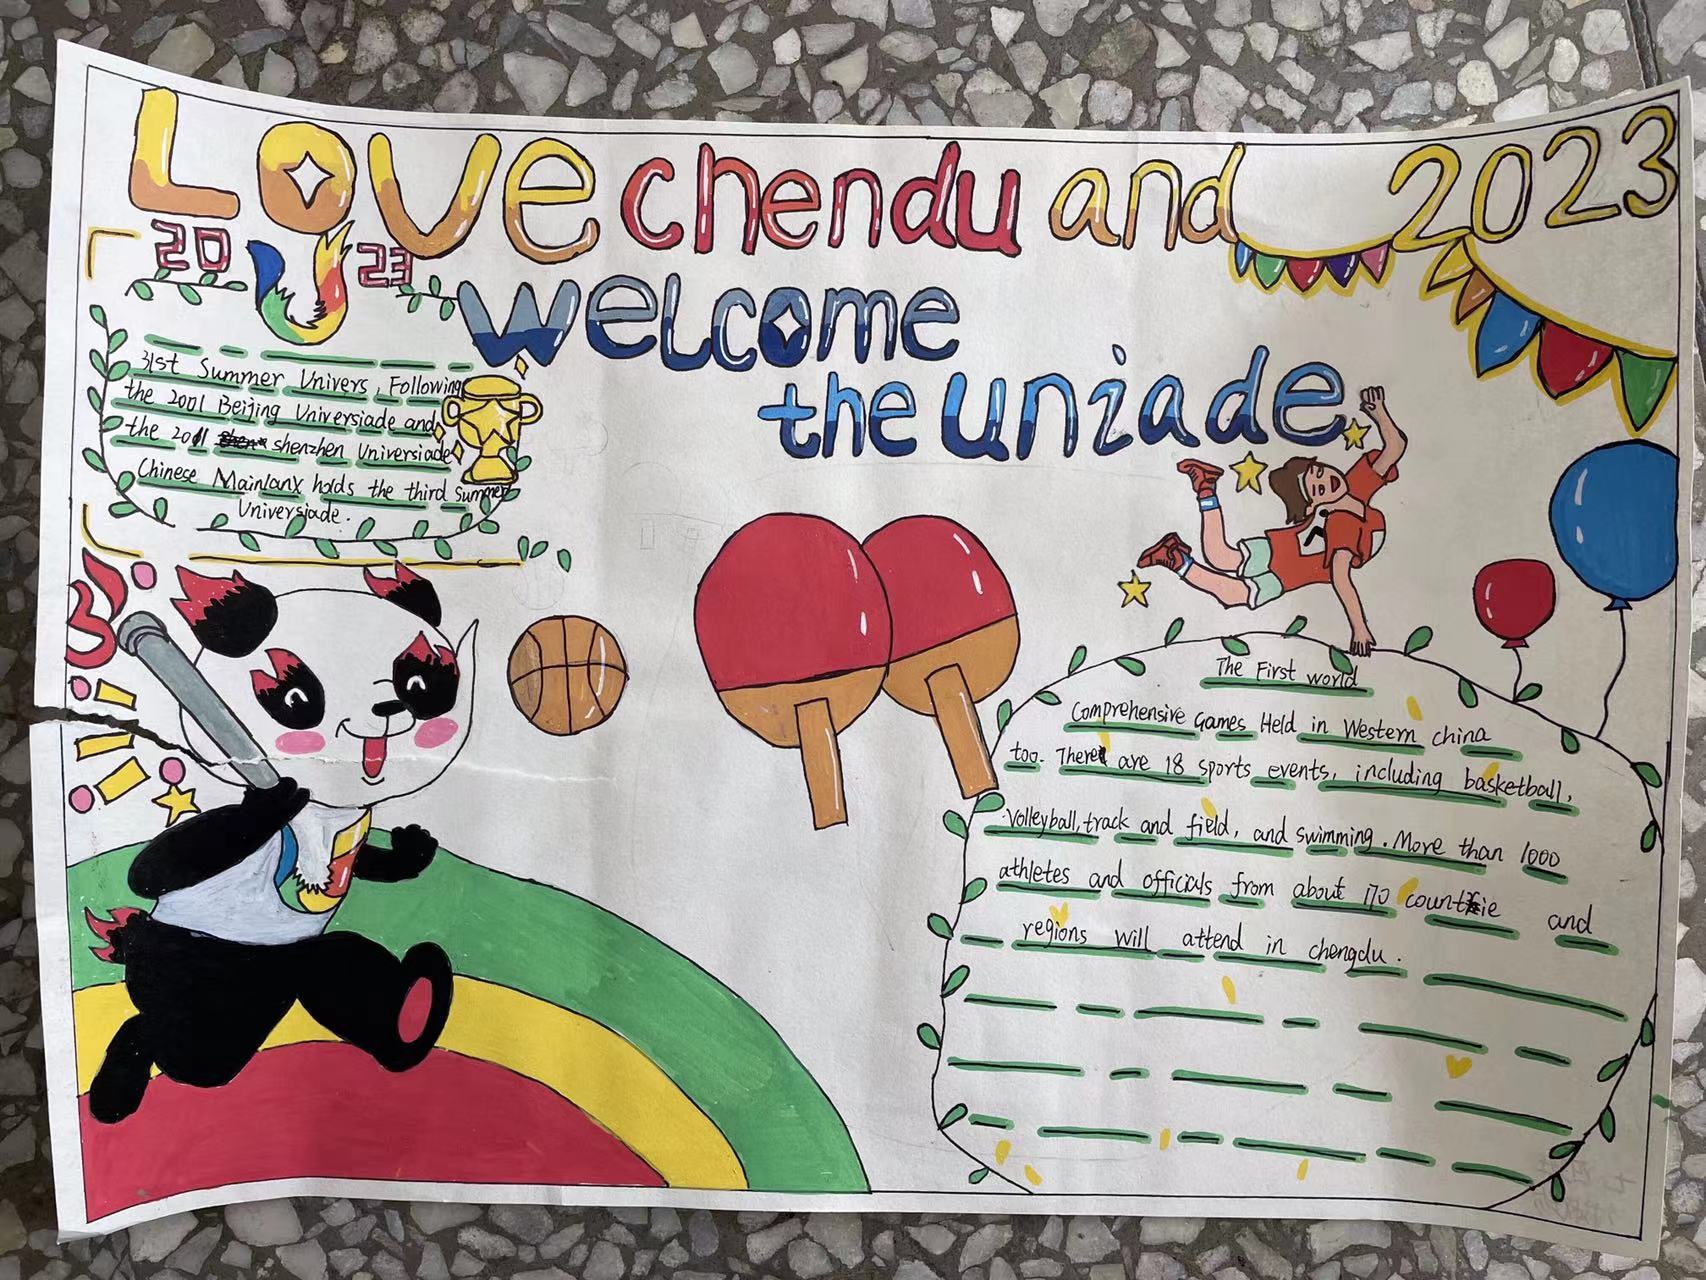 Love chendu and 2023
20 23
welcome
the uniade
31st Summer Univers, Following
the 2001 Beijing Universiade and
the 2011 shenzhen Universiade,
Chinese Mainlanx holds the third summer
Universiade.
The First world
Comprehensive Games Held in Western china
too. There are 18 sports events, including basketball,
Volleyball, track and field, and swimming. More than 1000
athletes and officials from about 170 countrie and
regions will attend in chengdu.